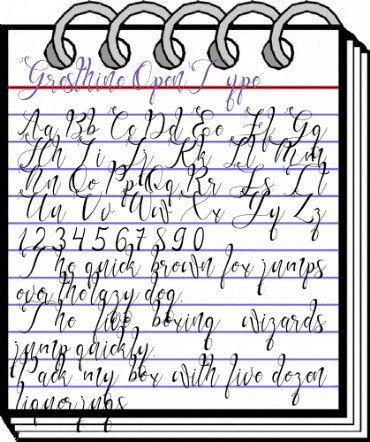 Gresthine Open Type
Aa Bb Cc Dd Ee Ff Gg
Hh Ii Jj Kk Ll Mm
Nn Oo Pp Qq Rr Ss Tt
Uu Vv Ww Xx Yy Zz
1 2 3 4 5 6 7 8 9 0
The quick brown fox jumps
over the lazy dog.
The five boxing wizards
jump quickly.
Pack my box with five dozen
liquor jugs